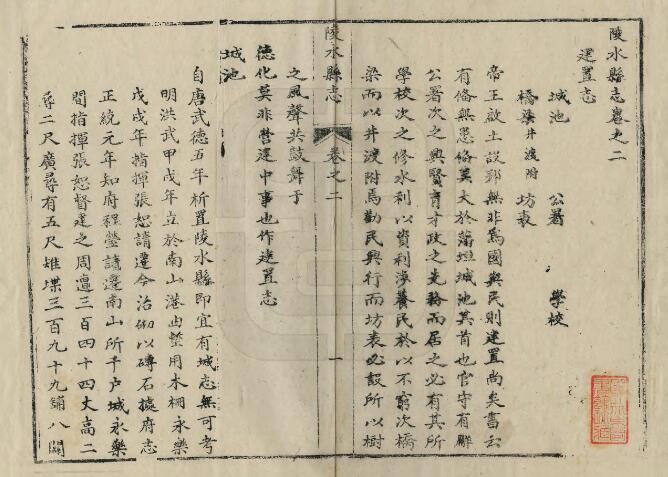 陵水縣志卷之二
建置志
城池 公署 學校
橋梁井渡附 坊表
帝王啟土設郡無非為國與民則建置尚矣書云
有備無患備莫大於藩垣城池其首也官守有廨
公署次之興賢育才政之先務而居之必有其所
學校次之修水利以資利溥養民於以不窮次橋
梁而以井渡附焉勸民興行而坊表必設所以樹
陵水縣志 卷之二 一
之風聲共鼓舞于
德化莫非營建中事也作建置志
城池
自唐武德五年析置陵水縣即宜有城志無可考
明洪武甲戌年立於南山港由整用木柵永樂
戊戌年指揮張恕請遷今治砌以磚石據府志
正統元年知府程瑩請遷南山所千户城永樂
間指揮張恕督建之周遭三百四十四丈高二
尋二尺廣尋有五尺雉堞三百九十九鋪八闢